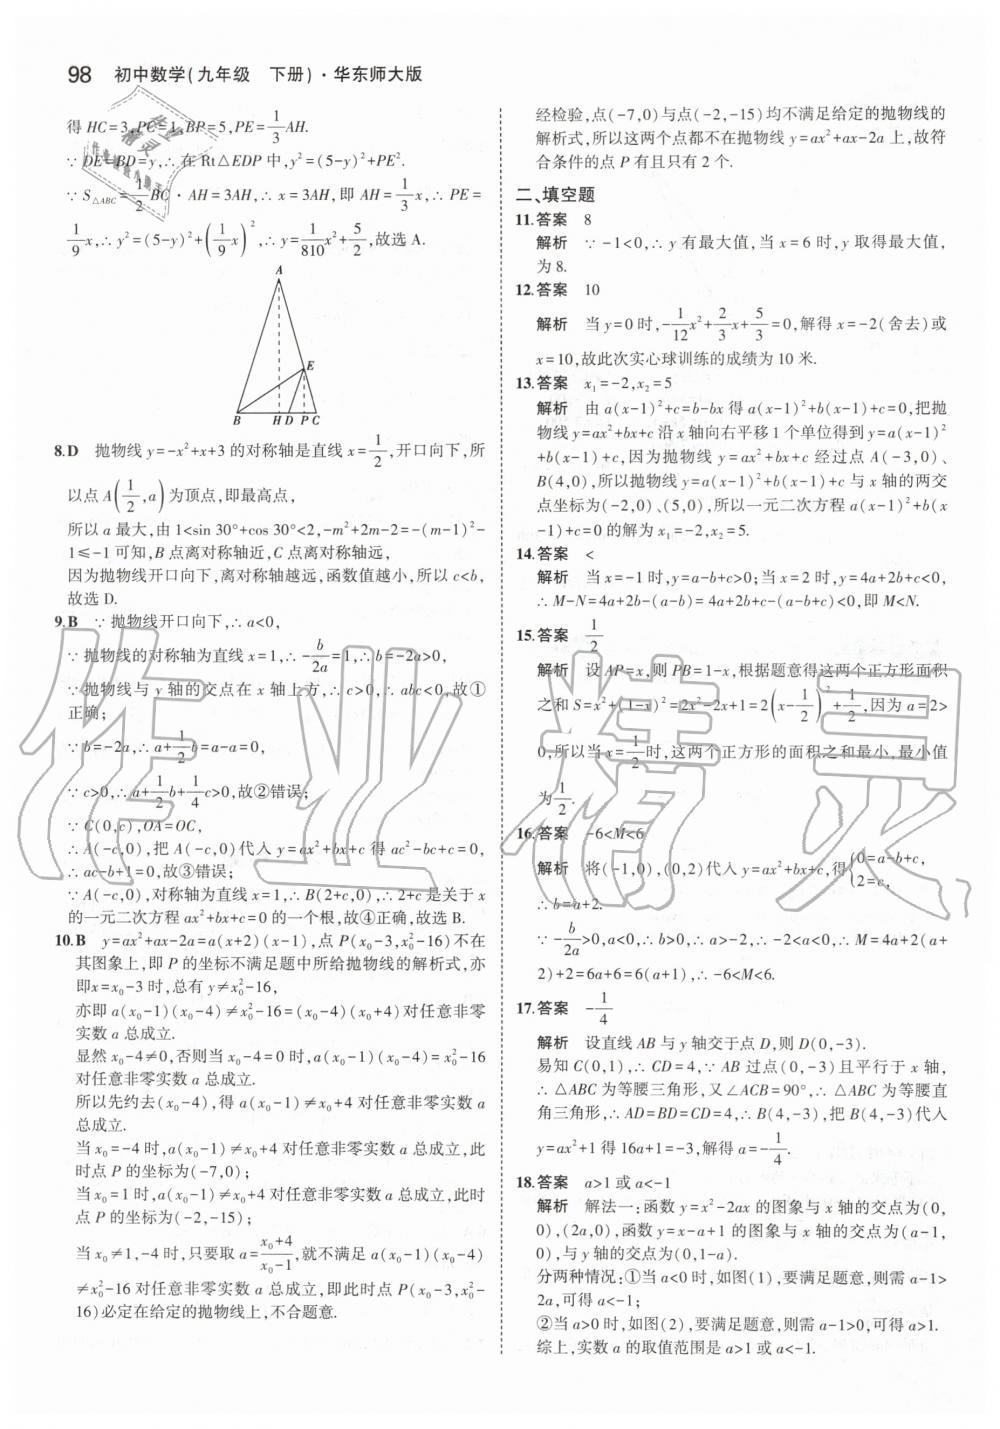 98 初中数学(九年级 下册)·华东师大版
得HC=3,PC=1,BP=5,PE=1/3AH.
∵DE=BD=y,∴在Rt△EDP中,y²=(5-y)²+PE².
∵S△ABC=1/2BC·AH=3AH,∴x=3AH,即AH=1/3x,∴PE=
1/9x,∴y²=(5-y)²+(1/9x)²,∴y=1/810x²+5/2,故选A.
A
E
B H D P C
8.D 抛物线y=-x²+x+3的对称轴是直线x=1/2,开口向下,所
以点A(1/2,a)为顶点,即最高点,
所以a最大,由1<sin 30°+cos 30°<2,-m²+2m-2=-(m-1)²-
1≤-1可知,B点离对称轴近,C点离对称轴远,
因为抛物线开口向下,离对称轴越远,函数值越小,所以c<b,
故选D.
9.B ∵抛物线开口向下,∴a<0,
∵抛物线的对称轴为直线x=1,∴-b/2a=1,∴b=-2a>0,
∵抛物线与y轴的交点在x轴上方,∴c>0,∴abc<0,故①
正确;
∵b=-2a,∴a+1/2b=a-a=0,
∵c>0,∴a+1/2b+1/4c>0,故②错误;
∵C(0,c),OA=OC,
∴A(-c,0),把A(-c,0)代入y=ax²+bx+c得ac²-bc+c=0,
∴ac-b+1=0,故③错误;
∵A(-c,0),对称轴为直线x=1,∴B(2+c,0),∴2+c是关于x
的一元二次方程ax²+bx+c=0的一个根,故④正确,故选B.
10.B y=ax²+ax-2a=a(x+2)(x-1),点P(x₀-3,x₀²-16)不在
其图象上,即P的坐标不满足题中所给抛物线的解析式,亦
即x=x₀-3时,总有y≠x₀²-16,
亦即a(x₀-1)(x₀-4)≠x₀²-16=(x₀-4)(x₀+4)对任意非零
实数a总成立.
显然x₀-4≠0,否则当x₀-4=0时,a(x₀-1)(x₀-4)=x₀²-16
对任意非零实数a总成立.
所以先约去(x₀-4),得a(x₀-1)≠x₀+4对任意非零实数a
总成立.
当x₀=-4时,a(x₀-1)≠x₀+4对任意非零实数a总成立,此
时点P的坐标为(-7,0);
当x₀=1时,a(x₀-1)≠x₀+4对任意非零实数a总成立,此时
点P的坐标为(-2,-15);
当x₀≠1,-4时,只要取a=(x₀+4)/(x₀-1),就不满足a(x₀-1)(x₀-4)
≠x₀²-16对任意非零实数a总成立,即此时点P(x₀-3,x₀²-
16)必定在给定的抛物线上,不合题意.
经检验,点(-7,0)与点(-2,-15)均不满足给定的抛物线的
解析式,所以这两个点都不在抛物线y=ax²+ax-2a上,故符
合条件的点P有且只有2个.
二、填空题
11.答案 8
解析 ∵-1<0,∴y有最大值,当x=6时,y取得最大值,
为8.
12.答案 10
解析 当y=0时,-1/12x²+2/3x+5/3=0,解得x=-2(舍去)或
x=10,故此次实心球训练的成绩为10米.
13.答案 x₁=-2,x₂=5
解析 由a(x-1)²+c=b-bx得a(x-1)²+b(x-1)+c=0,把抛
物线y=ax²+bx+c沿x轴向右平移1个单位得到y=a(x-1)²
+b(x-1)+c,因为抛物线y=ax²+bx+c经过点A(-3,0)、
B(4,0),所以抛物线y=a(x-1)²+b(x-1)+c与x轴的两交
点坐标为(-2,0)、(5,0),所以一元二次方程a(x-1)²+b(x
-1)+c=0的解为x₁=-2,x₂=5.
14.答案 <
解析 当x=-1时,y=a-b+c>0;当x=2时,y=4a+2b+c<0,
∴M-N=4a+2b-(a-b)=4a+2b+c-(a-b+c)<0,即M<N.
15.答案 1/2
解析 设AP=x,则PB=1-x,根据题意得这两个正方形面积
之和S=x²+(1-x)²=2x²-2x+1=2(x-1/2)²+1/2,因为a=2>
0,所以当x=1/2时,这两个正方形的面积之和最小,最小值
为1/2.
16.答案 -6<M<6
解析 将(-1,0),(0,2)代入y=ax²+bx+c,得{0=a-b+c, 2=c,
∴b=a+2.
∵-b/2a>0,a<0,∴b>0,∴a>-2,∴-2<a<0,∴M=4a+2(a+
2)+2=6a+6=6(a+1),∴-6<M<6.
17.答案 -1/4
解析 设直线AB与y轴交于点D,则D(0,-3).
易知C(0,1),∴CD=4,∵AB过点(0,-3)且平行于x轴,
∴△ABC为等腰三角形,又∠ACB=90°,∴△ABC为等腰直
角三角形,∴AD=BD=CD=4,∴B(4,-3),把B(4,-3)代入
y=ax²+1得16a+1=-3,解得a=-1/4.
18.答案 a>1或a<-1
解析 解法一:函数y=x²-2ax的图象与x轴的交点为(0,
0),(2a,0),函数y=x-a+1的图象与x轴的交点为(a-1,
0),与y轴的交点为(0,1-a).
分两种情况:①当a<0时,如图(1),要满足题意,则需a-1>
2a,可得a<-1;
②当a>0时,如图(2),要满足题意,则需a-1>0,可得a>1.
综上,实数a的取值范围是a>1或a<-1.
作业精灵